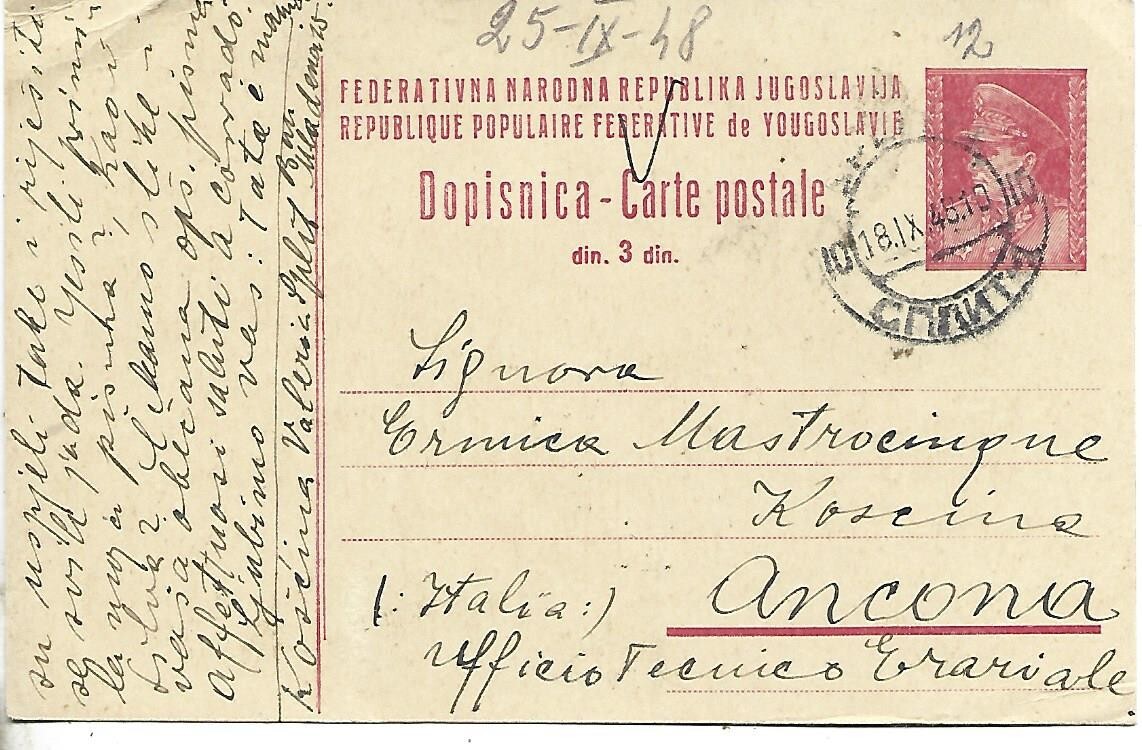 25-IX-48
12
FEDERATIVNA NARODNA REPUBLIKA JUGOSLAVIJA
REPUBLIQUE POPULAIRE FEDERATIVE de YOUGOSLAVIE
Dopisnica - Carte postale
din. 3 din.
18.IX.48.10
СПЛИТ
Signora
Ermica Mastrocinque
Koscina
Ancona
(: Italia :)
Ufficio Tecnico Erariale
su uspjeli tako i riješiti
se svih jada. Jesi li primi
la moja pisma?, kao i
Silva? Čekamo slike i
vaša obećana opš. pisma
Affettuosi saluti a Corrado.
Ljubimo vas: Tata e mama
Košćina Valeria Split